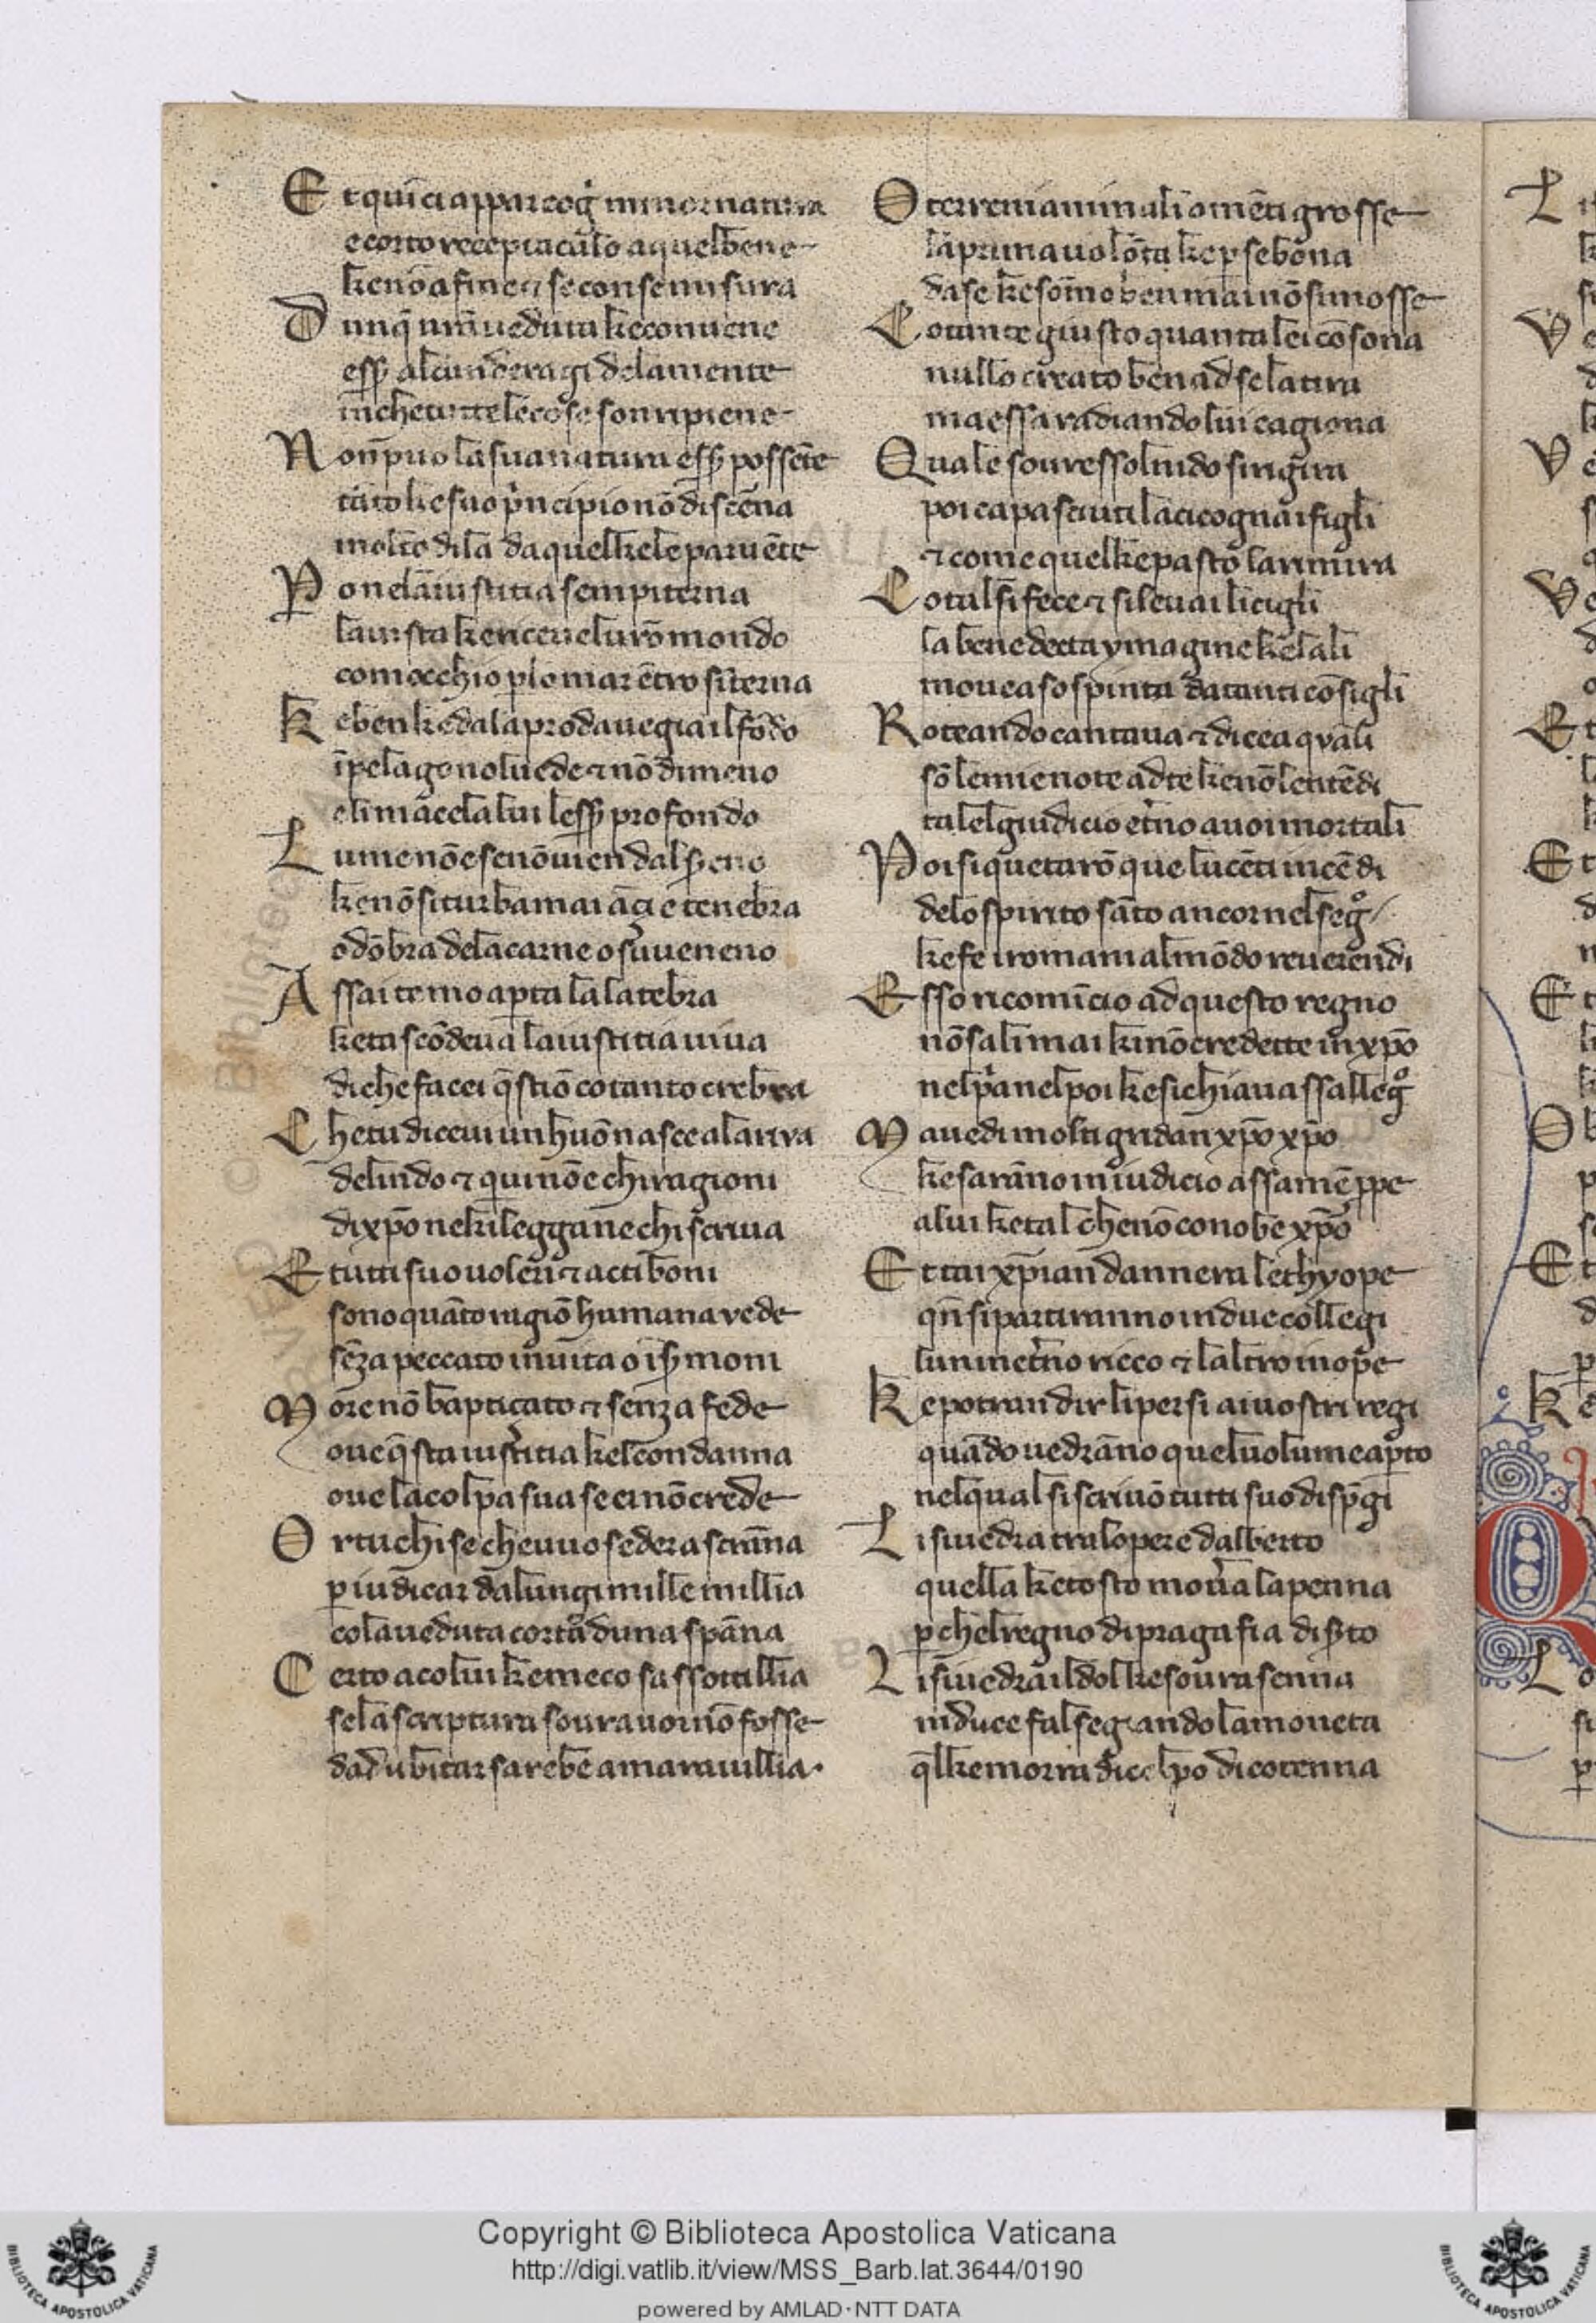 Et quīci appar cog̍ minor natura
e corto receptaculo a quel bene
ke nō a fine ⁊ se con se misura
Dunq̄ nr̄a ueduta ke conuene
eſſ̄ alcun de ragi de la mente
in che tutte le cose son ripiene
Non puo la sua natura eſſ̄ possēte
tāto ke suo p̍ncipio nō discēna
molto di la da quel kele paruēte
Pero ne la iustitia sempiterna
la uista ke riceue lurō mondo
com occhio p lo mar ētro si terna
Ke ben ke da la proda uegia il fōdo
ī pelago nol uede ⁊ nō dimeno
eli ma cela lui leſſ̄ profondo
Lume nō e se nō uien dal s̄eno
ke nō si turba mai āci e tenebra
od ōbra de la carne o su ueneno
Assai te mo apta la latebra
ke tascōdeua la iustitia uiua
di che facei q̄stiō cotanto crebra
Che tu diceui un huō nasce a la riva
de lindo ⁊ qui nō e chi ragioni
di xp̄o ne ki legga ne chi scriua
E tutti suo uoleri ⁊ acti boni
sono quāto ragiō humana vede
sēza peccato in uita o in s̄moni
More nō bapticato ⁊ senza fede
oue q̄sta iustitia kel condanna
oue la colpa sua se ei nō crede
Or tu chi se che uuo seder a scrāna
p iudicar da lungi mille millia
co la ueduta corta duna spāna
Certo a colui ke meco sassottillia
se la scriptura soura uoi nō fosse
da dubitar sarebe a marauillia.
O terreni animali o mēti grosse
la prima uolōta ke p se bōna
da se ke sōmo ben mai nō si mosse
Cotanto e giusto quanta lei cōsona
nullo creato ben ad se la tira
ma essa radiando lui cagiona
Quale souresso lnido si ngira
poi ca pasciuti la cicogna i figli
⁊ come quel ke pasto la rimira
Cotal si fece ⁊ si leuai li cigli
la benedecta ymagine ke lali
mouea sospinta da tanti cōsigli
Roteando cantaua ⁊ dicea quali
sō le mie note ad te ke nō lentēdi
tal el giudicio et̄no a uoi mortali
Poi si quetarō que lucēti incēdi
de lo spirito sāto ancor nel seg̊
ke fe i romani al mōdo reuerendi
Esso ricomīcio ad questo regno
nō sali mai ki nō credette in xp̄o
ne l p̍a ne l poi ke si chiauassal leg̊
Ma uedi molti gridan xp̄o xp̄o
ke sarāno in iudicio assai mē ppe
a lui ke tal che nō conobe xp̄o
E ttai xp̄ian dannera lethyope
qn̄ si partiranno in due collegi
lun in et̄no ricco ⁊ laltro inope
Ke potran dir li persi ai uostri regi
quādo uedrāno quel uolume apto
nel qual si scriuō tutti suo disp̄gi
Li si uedra tra lopere dalberto
quella ke tosto mouera la penna
p chel regno di praga fia dis̄to
Li si uedra il dol ke soura senna
induce falseg̍ando la moneta
q̄l ke morra di colpo di cotenna
Copyright © Biblioteca Apostolica Vaticana
http://digi.vatlib.it/view/MSS_Barb.lat.3644/0190
powered by AMLAD·NTT DATA